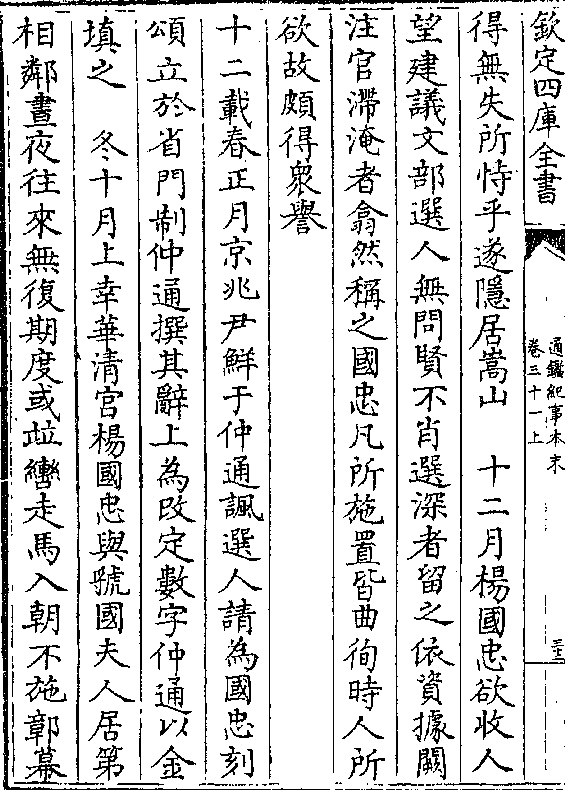 欽定四庫全書
通鑑紀事本末
卷三十一上
三十二
得無失所恃乎遂隱居嵩山　十二月楊國忠欲收人
望建議文部選人無問賢不肖選深者留之依資據闕
注官滯淹者翕然稱之國忠凡所施置皆曲徇時人所
欲故頗得衆譽
十二載春正月京兆尹鮮于仲通諷選人請為國忠刻
頌立於省門制仲通撰其辭上為改定數字仲通以金
填之　冬十月上幸華清宮楊國忠與虢國夫人居第
相鄰晝夜往來無復期度或竝轡走馬入朝不施鄣幕